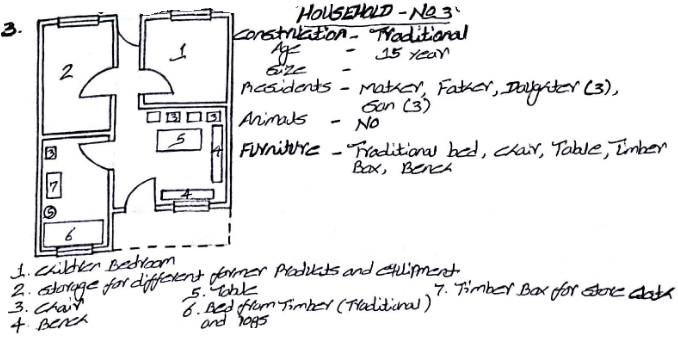 3.
HOUSEHOLD - NO 3
Construction - Traditional
Age - 15 year
Size -
Residents - Mother, Father, Daughter (3),
Son (3)
Animals - No
Furniture - Traditional bed, chair, Table, Timber
Box, Bench
2
1
3
3
5
4
3
7
3
4
6
1. Children Bedroom
2. Storage for different former Products and equipment
3. Chair
4. Bench
5. Table
6. Bed from Timber (Traditional)
and rops
7. Timber Box for store cloth